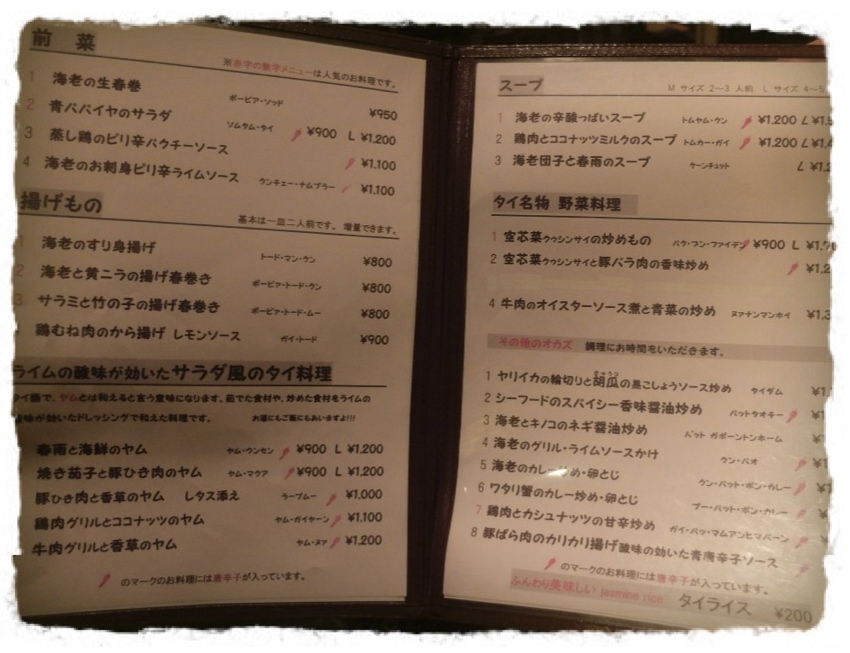 前 菜
※赤字の数字メニューは人気のお料理です。
1 海老の生春巻 ポーピア・ソッド ¥950
2 青パパイヤのサラダ ソムタム・タイ ¥900 L ¥1,200
3 蒸し鶏のピリ辛パクチーソース ¥1,100
4 海老のお刺身ピリ辛ライムソース クンチェー・ナムプラー ¥1,100
揚げもの
基本は一皿二人前です。増量できます。
1 海老のすり身揚げ トード・マン・クン ¥800
2 海老と黄ニラの揚げ春巻き ポーピア・トード・クン ¥800
3 サラミと竹の子の揚げ春巻き ポーピア・トード・ムー ¥800
鶏むね肉のから揚げ レモンソース ガイ・トード ¥900
ライムの酸味が効いたサラダ風のタイ料理
タイ語で、ヤムとは和えると言う意味になります。茹でた食材や、炒めた食材をライムの
酸味が効いたドレッシングで和えた料理です。 お酒にもご飯にもあいますよ!!!
春雨と海鮮のヤム ヤム・ウンセン ¥900 L ¥1,200
焼き茄子と豚ひき肉のヤム ヤム・マクア ¥900 L ¥1,200
豚ひき肉と香草のヤム レタス添え ラープムー ¥1,000
鶏肉グリルとココナッツのヤム ヤム・ガイヤーン ¥1,100
牛肉グリルと香草のヤム ヤム・ヌア ¥1,200
のマークのお料理には唐辛子が入っています。
スープ
M サイズ 2〜3 人前 L サイズ 4〜5
1 海老の辛酸っぱいスープ トムヤム・クン ¥1,200 L ¥1,5
2 鶏肉とココナッツミルクのスープ トムカー・ガイ ¥1,200 L ¥1,4
3 海老団子と春雨のスープ ケーンチュット L ¥1,2
タイ名物 野菜料理
1 空芯菜クウシンサイの炒めもの パク・ブン・ファイデン ¥900 L ¥1,
2 空芯菜クウシンサイと豚バラ肉の香味炒め ¥1,2
4 牛肉のオイスターソース煮と青菜の炒め ヌァナンマンホイ ¥1,3
その他のオカズ 調理にお時間をいただきます。
1 ヤリイカの輪切りと胡瓜の黒こしょうソース炒め タイダム ¥1,
2 シーフードのスパイシー香味醤油炒め パットクオチー ¥1,
3 海老とキノコのネギ醤油炒め パット ガポーントンホーム ¥1,
4 海老のグリル・ライムソースかけ クン・パオ ¥1
5 海老のカレー炒め・卵とじ クン・パット・ポン・カレー ¥1
6 ワタリ蟹のカレー炒め・卵とじ プー・パット・ポン・カレー ¥1
7 鶏肉とカシュナッツの甘辛炒め ガイ・パッ・マムアンヒマパーン ¥1
8 豚ばら肉のカリカリ揚げ酸味の効いた青唐辛子ソース ¥1
のマークのお料理には唐辛子が入っています。
ふんわり美味しい jasmine rice タイライス ¥200